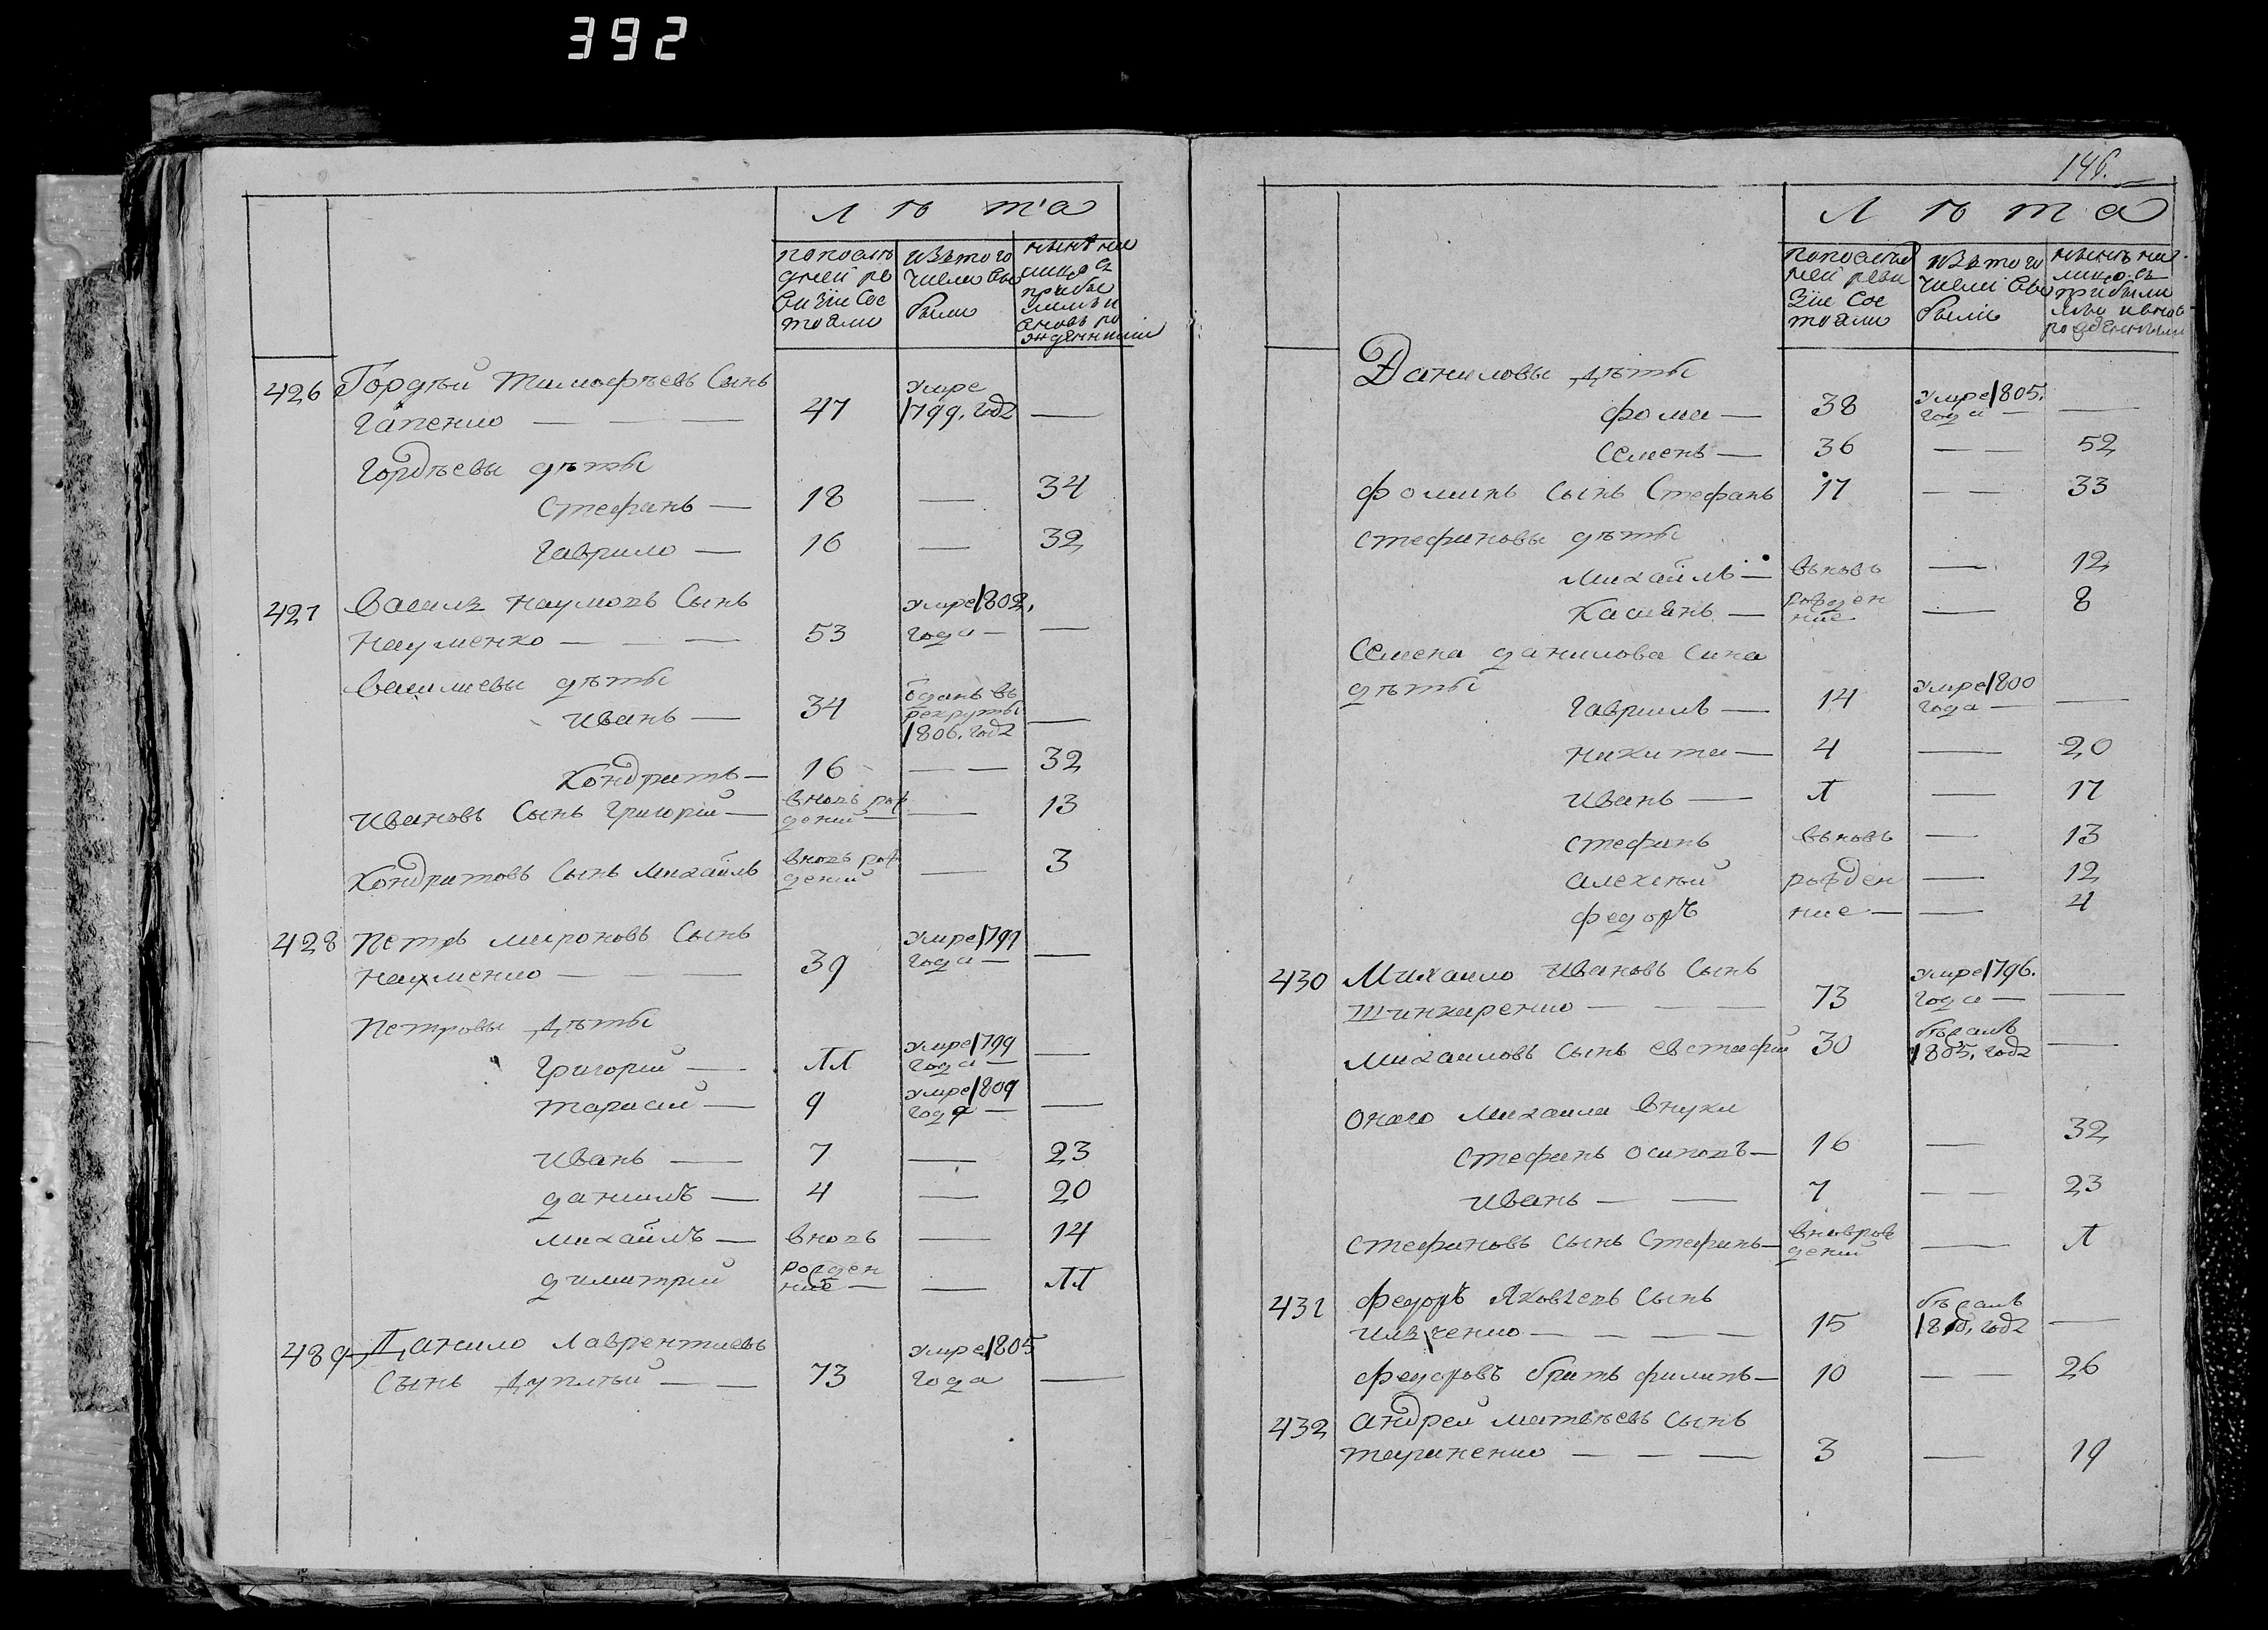 392
Л ѣ та
попослѣ
дней ре
визіи сос
тояли
изътого
числа вы
были
нынѣ на
лицо съ
прибы
лыми и
вновь ро
жденными
426 Гордѣй Тимофѣевъ Сынъ
Гапенко — — — 47 умре 1799. года —
Гордѣевы дѣты
Стефанъ — 18 — 34
Гаврило — 16 — 32
427 Василь Наумовъ Сынъ
Науменко — — — 53 умре 1802. года — —
Василиевы дѣты
Иванъ — 34 отданъ въ рекруты 1806. года —
Кондратъ — 16 — — 32
Ивановъ Сынъ Григорій — вновь рож дений — — 13
Кондратовъ Сынъ Михайлъ вновь рож дений — 3
428 Петръ мироновъ Сынъ
Науменко — — — 39 умре 1799 года — —
Петровы дѣты
Григорій — 11 умре 1799 года — —
Тарасий — 9 умре 1809 года — —
Иванъ — 7 — 23
данилъ — 4 — 20
михайлъ — вновь — 14
димитрій рожден ние — — 11
489 Данило Лаврентиевъ
Сынъ Дуплѣй — — 73 умре 1805 года —
146.
Л ѣ т а
попослѣд
ней реви
зіи сос
тояли
изътого
числа вы
были
нынѣ на
лицо съ
прибыли
ми и внов
рожденными
Даниловы дѣты
Фома — 38 умре 1805. года — —
Семенъ — 36 — — 52
Фоминъ сынъ Стефанъ 17 — — 33
Стефановы дѣты
Михайлъ — вьновь — 12
Касіянъ — рожден ние — 8
Семена данилова Сина
дѣты
Гаврилъ — 14 умре 1800 года — —
Никита — 4 — 20
Иванъ — 1 — 17
Стефанъ вьновь — 13
Алексѣй рожден — 12
Федоръ ние — — 4
430 Михаило Ивановъ Сынъ
Шинкаренко — — 73 умре 1796. года — —
Михаиловъ Сынъ Евстафій 30 бѣжалъ 1805, года —
Оного Михаила Внуки
Стефанъ Осиповъ — 16 — 32
Иванъ — — 7 — — 23
Стефановъ Сынъ Стефанъ — вновърож дений — 1
431 Федоръ Яковлевъ Сынъ
Ильченко — — — — 15 бѣжалъ 1810, года —
Федоровъ братъ филипъ — 10 — — 26
432 Андрей матвѣевъ Сынъ
Тараненко — — — 3 — 19